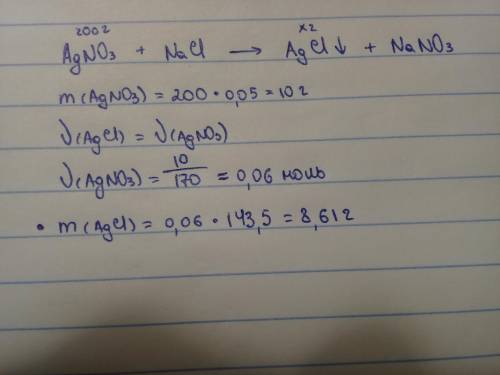 200г x г
AgNO₃ + NaCl → AgCl↓ + NaNO₃
m(AgNO₃) = 200 · 0,05 = 10 г
ν(AgCl) = ν(AgNO₃)
ν(AgNO₃) = 10/170 = 0,06 моль
• m(AgCl) = 0,06 · 143,5 = 8,61 г